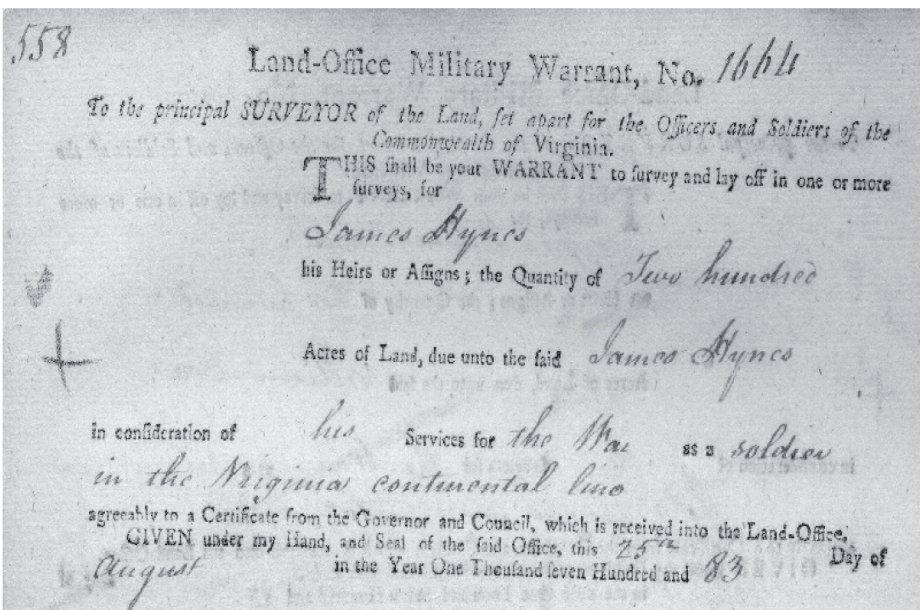 558
Land-Office Military Warrant, No. 1664
To the principal SURVEYOR of the Land, set apart for the Officers and Soldiers of the
Commonwealth of Virginia.
THIS shall be your WARRANT to survey and lay off in one or more
surveys, for
James Hynes
his Heirs or Assigns; the Quantity of Two hundred
Acres of Land, due unto the said James Hynes
in consideration of his Services for the War as a soldier
in the Virginia continental line
agreeably to a Certificate from the Governor and Council, which is received into the Land-Office.
GIVEN under my Hand, and Seal of the said Office, this 25th Day of
August in the Year One Thousand seven Hundred and 83